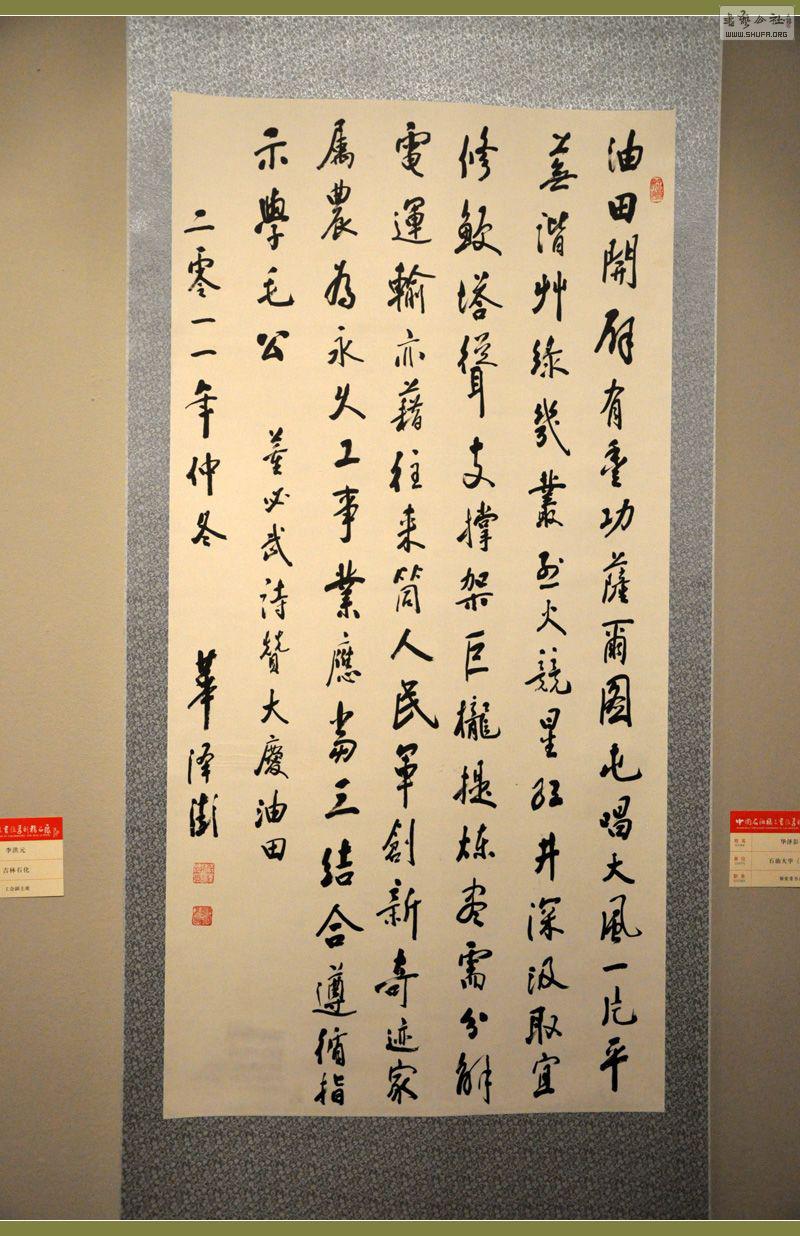 油田開辟有奎功薩爾圖屯唱大風一片平
蕪谐艸綠幾叢烈火競星紅井深汲取宜
修鮫塔聳支撐架巨櫳提煉盡需分解
電運輸亦藉往来筒人民軍創新奇迹家
属農為永久工事業應當三結合遵循指
示學毛公 董必武詩贊大慶油田
二零一一年仲冬 華泽澎
书艺公社
WWW.SHUFA.ORG
李洪元
吉林石化
工会副主席
华泽彭
石油大学